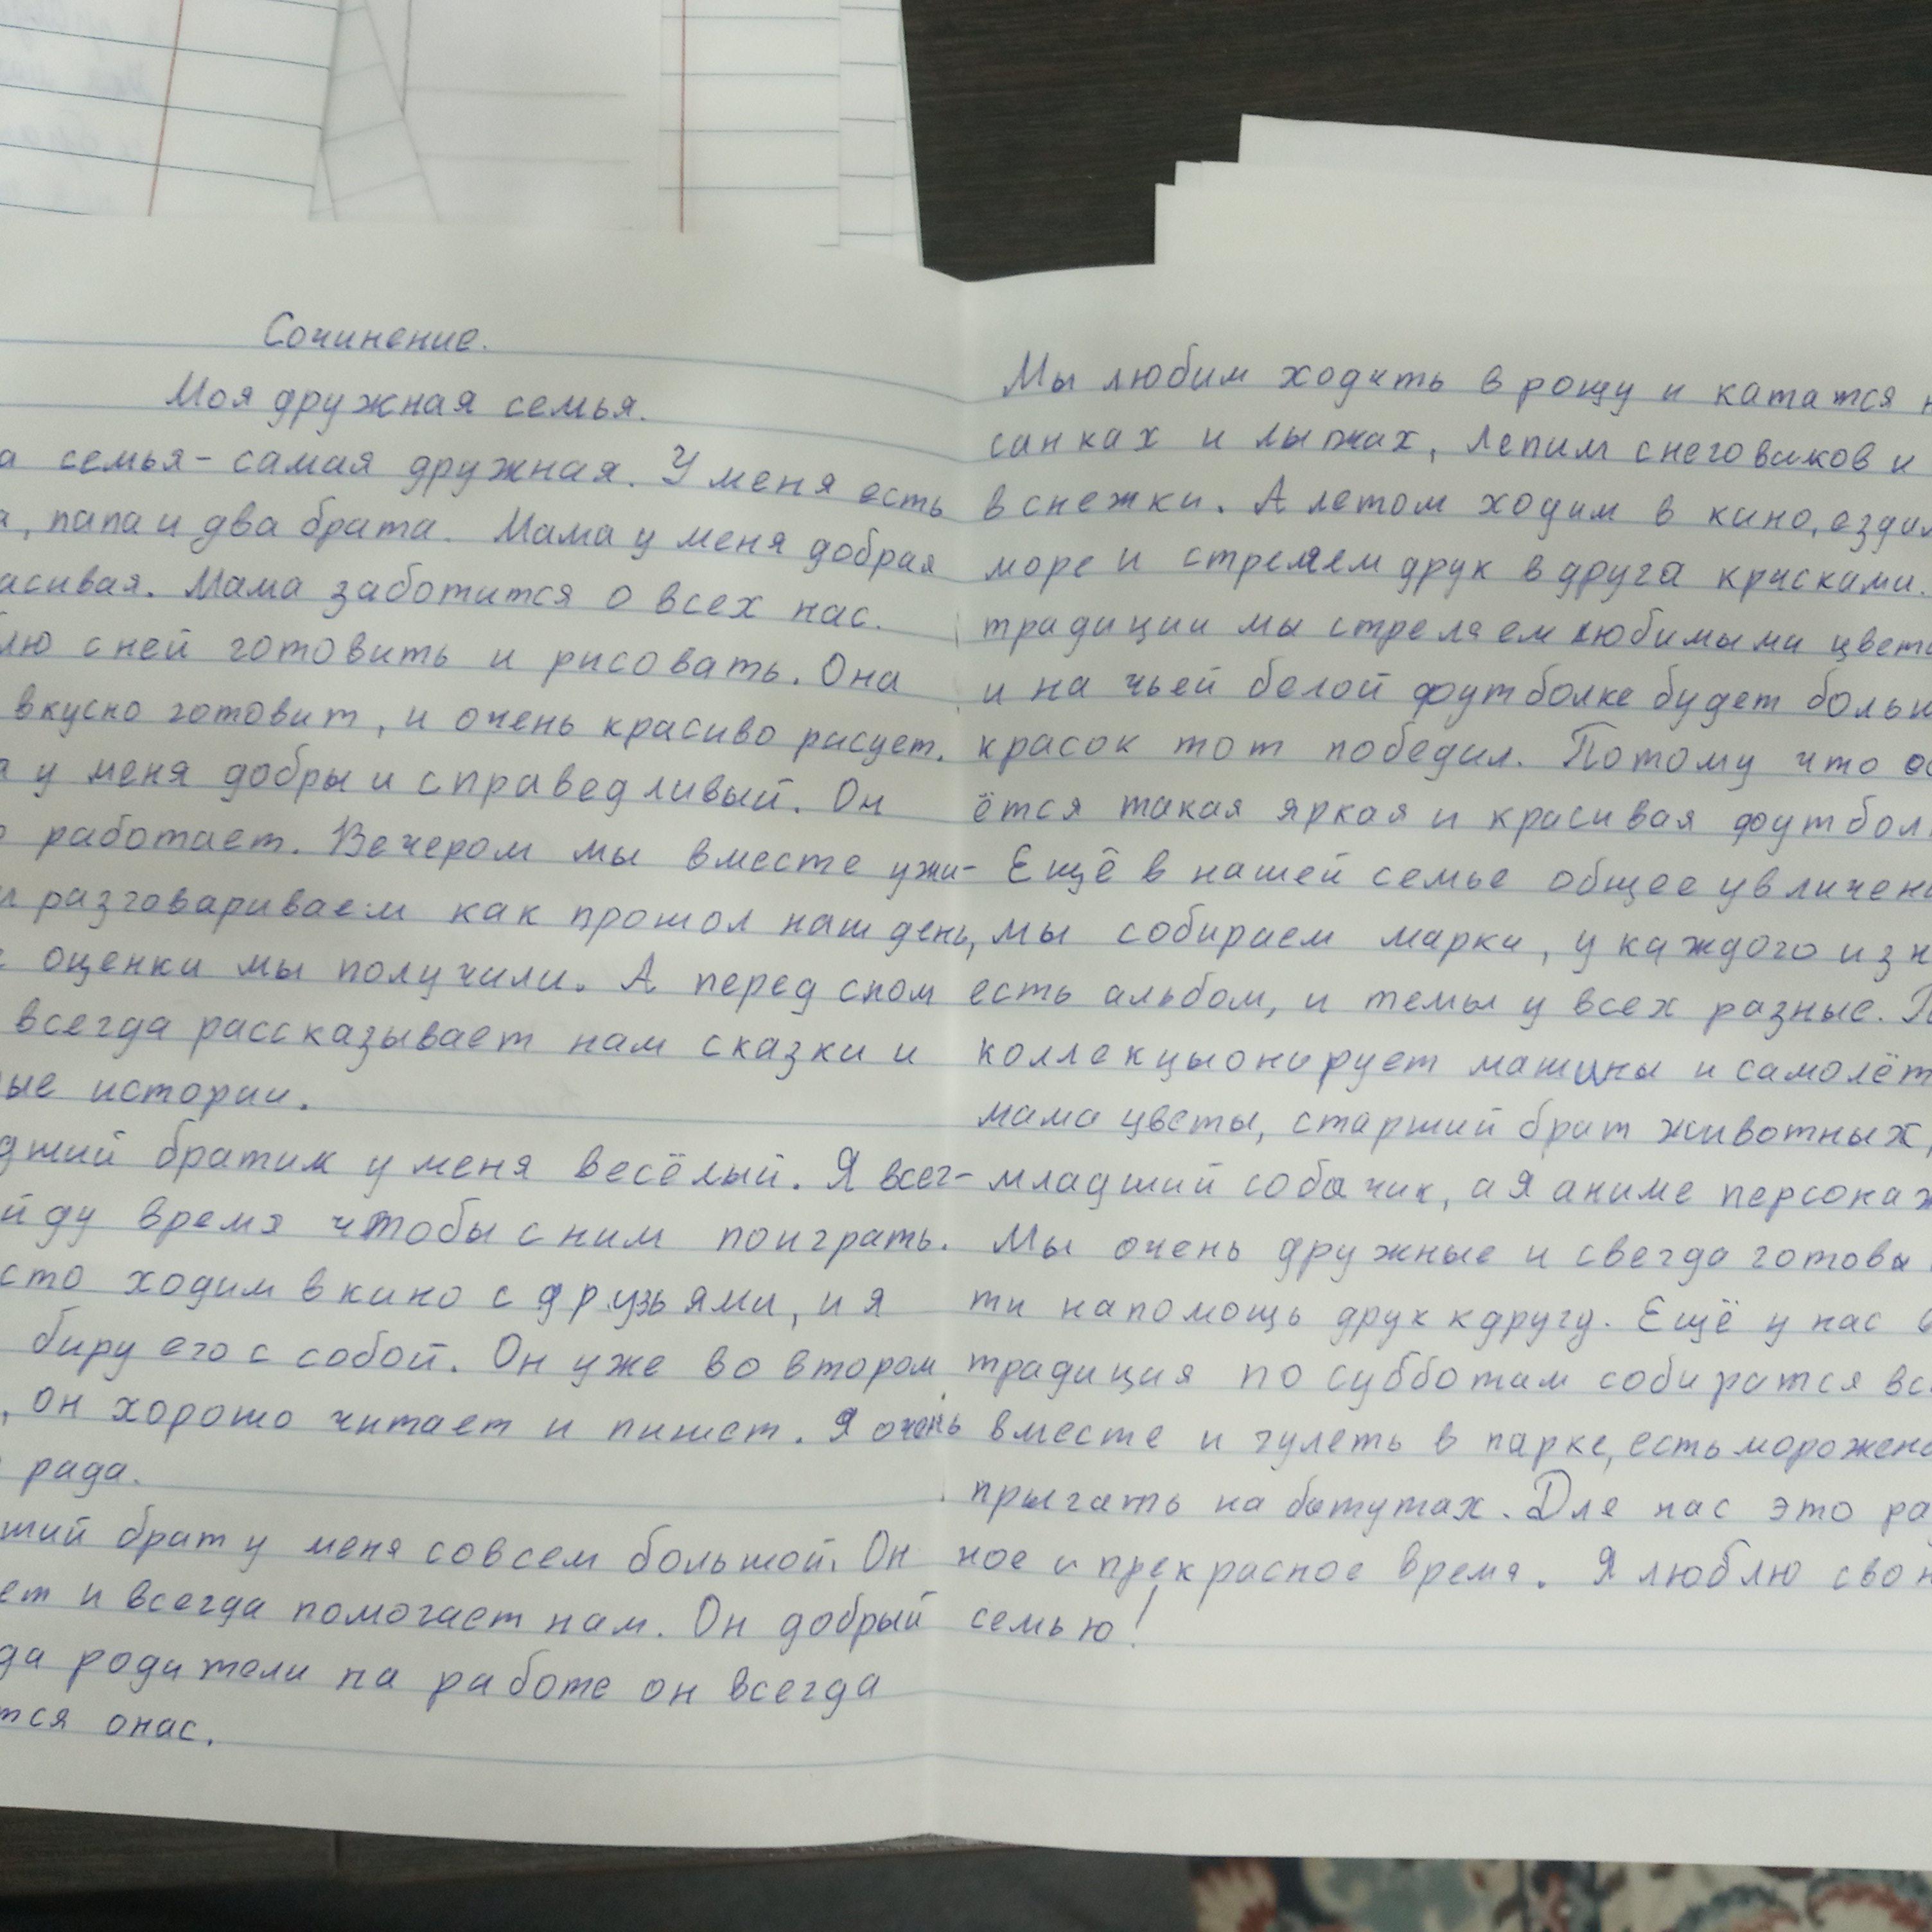 Сочинение.
Моя дружная семья.
а семья - самая дружная. У меня есть
, папа и два брата. Мама у меня добрая
асивая. Мама заботится о всех нас.
лю с ней готовить и рисовать. Она
вкусно готовит, и очень красиво рисует.
а у меня добры и справедливый. Он
о работает. Вечером мы вместе ужи-
и разговариваем как прошол наш день,
е оценки мы получили. А перед сном
всегда рассказывает нам сказки и
ые истории.
дший братик у меня весёлый. Я всег-
йду время чтобы с ним поиграть.
сто ходим в кино с друзьями, и я
биру его с собой. Он уже во втором
, он хорошо читает и пишет. Я очень
рада.
ший брат у меня совсем большой. Он
ет и всегда помогает нам. Он добрый
да родители на работе он всегда
тся о нас.
Мы любим ходить в рощу и катался н
санках и лыжах, лепим снеговиков и
в снежки. А летом ходим в кино, ездим
море и стреляем друк в друга красками.
традиции мы стреляем любимыми цвета
и на чьей белой футболке будет больш
красок тот победил. Потому что ос
ётся такая яркая и красивая футбол
Ещё в нашей семье общее увличени
мы собираем марки, у каждого из н
есть альбом, и темы у всех разные. П
коллекцыонирует машины и самолёт
мама цветы, старший брат животных,
младший собачик, а я аниме персонаж
Мы очень дружные и свегда готовы
ти на помощь друк к другу. Ещё у нас
традиция по субботам собиратся вс
вместе и гулеть в парке, есть морожено
прыгать на батутах. Для нас это ра
ное и прекрасное время. Я люблю сво
семью!